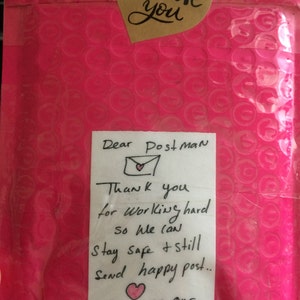 you
Dear Postman
Thank you
for working hard
so we can
Stay safe & still
send happy post..